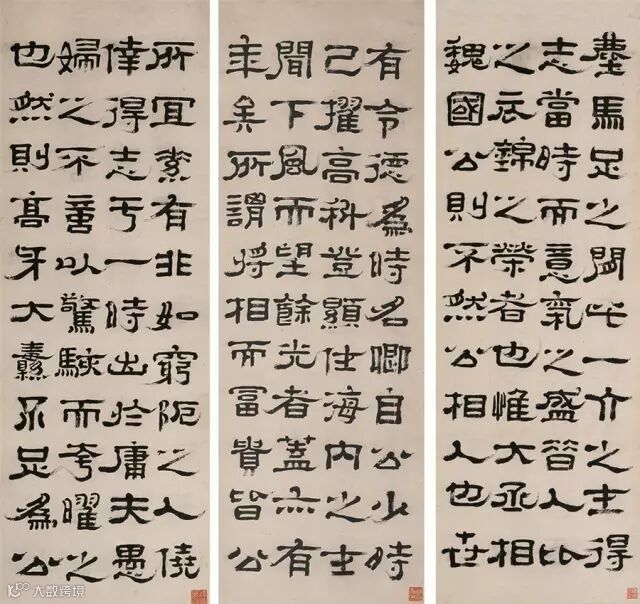 塵馬足之間此一介之士得
志當時而意氣之盛昔人比
之衣錦之榮者也惟大丞相
魏國公則不然公相人也世
有令德為時名卿自公少時
已擢高科登顯仕海内之士
聞下風而望餘光者蓋亦有
年矣所謂將相而富貴皆公
所宜素有非如窮阨之人僥
倖得志于一時出於庸夫愚
婦之不意以驚駭而夸曜之
也然則高牙大纛不足為公
大数跨境